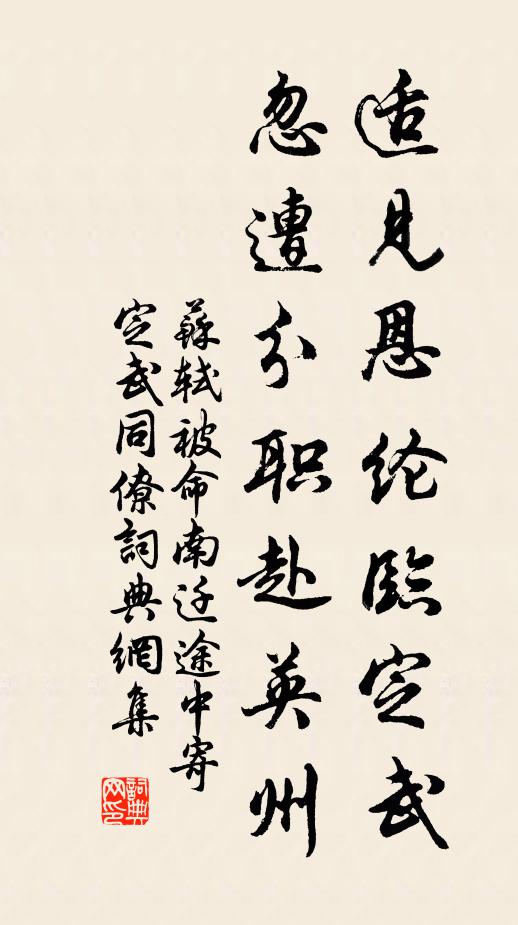 适见恩纶临定武
忽遭分职赴英州
蘇軾被命南迁途中寄
定武同僚詞典網集
詞典
网印